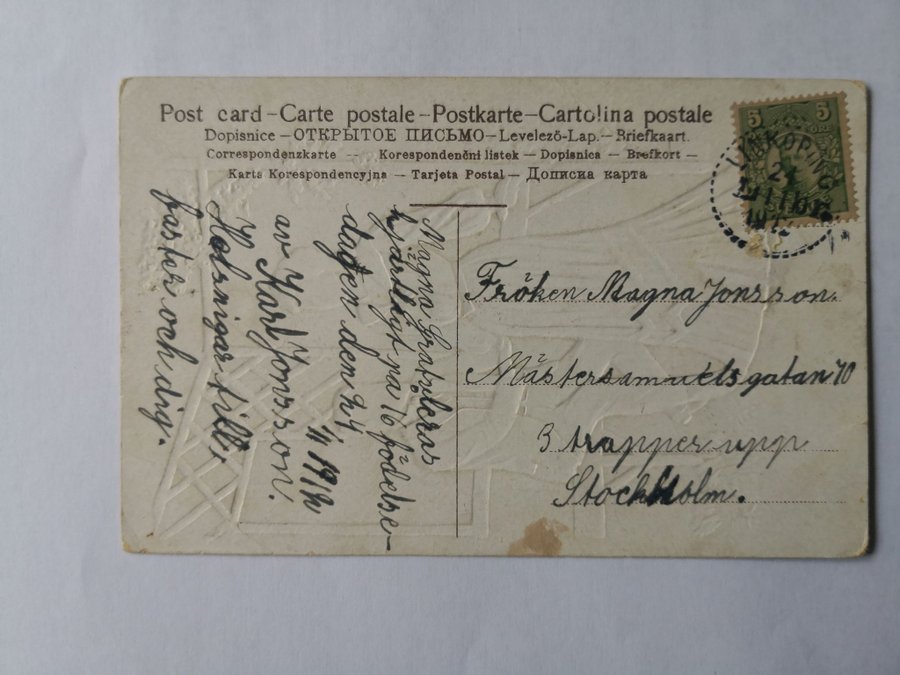 Post card – Carte postale – Postkarte – Cartolina postale
Dopisnice – ОТКРЫТОЕ ПИСЬМО – Levelező-Lap. – Briefkaart.
Correspondenzkarte – Korespondenčni listek – Dopisnica – Brefkort –
Karta Korespondencyjna – Tarjeta Postal – Дописна карта
5 5
ÖRE
LINKÖPING
Magna Gratuleras
hjärtligt na 16 födelse-
dagen den 24
av Karl Jonsson.
Helsnigar till
faster och dig.
Fröken Magna Jonsson.
Mästersamuelsgatan 70
3 trapper upp
Stockholm.